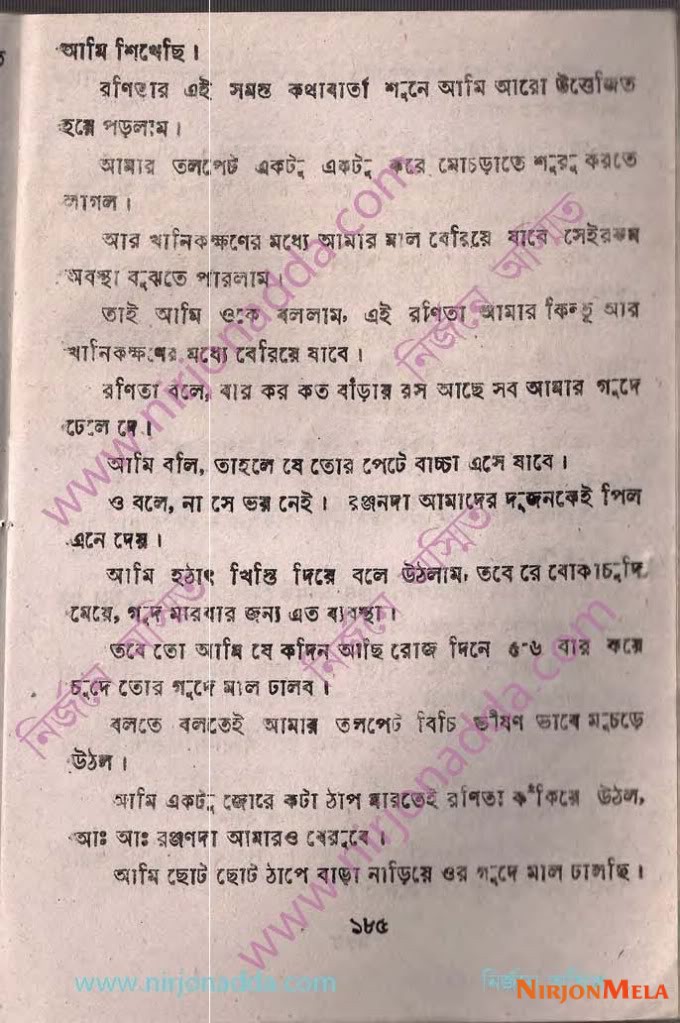 আমি শিখেছি।
রণিতার এই সমস্ত কথাবার্তা শুনে আমি আরো উত্তেজিত
হয়ে পড়লাম।
আমার তলপেট একটু একটু করে মোচড়াতে শুরু করতে
লাগল।
আর খানিকক্ষণের মধ্যে আমার মাল বেরিয়ে যাবে সেইরকম
অবস্থা বুঝতে পারলাম।
তাই আমি ওকে বললাম, এই রণিতা আমার কিন্তু আর
খানিকক্ষণের মধ্যে বেরিয়ে যাবে।
রণিতা বলে, বার কর কত বাঁড়ার রস আছে সব আমার গুদে
ঢেলে দে।
আমি বলি, তাহলে যে তোর পেটে বাচ্চা এসে যাবে।
ও বলে, না সে ভয় নেই। রঞ্জনদা আমাদের দুজনকেই পিল
এনে দেয়।
আমি হঠাৎ খিস্তি দিয়ে বলে উঠলাম, তবে রে বোকাচুদি
মেয়ে, গুদ মারবার জন্য এত ব্যবস্থা।
তবে তো আমি যে কদিন আছি রোজ দিনে ৫-৬ বার করে
চুদে তোর গুদে মাল ঢালব।
বলতে বলতেই আমার তলপেট বিচি ভীষণ ভাবে মুচড়ে
উঠল।
আমি একটু জোরে কটা ঠাপ মারতেই রণিতা কঁকিয়ে উঠল,
আঃ আঃ রঞ্জণদা আমারও বেরুবে।
আমি ছোট ছোট ঠাপে বাড়া নাড়িয়ে ওর গুদে মাল ঢালছি।
১৮৫
www.nirjonadda.com
নির্জনে অস্মিত
NIRJONMELA